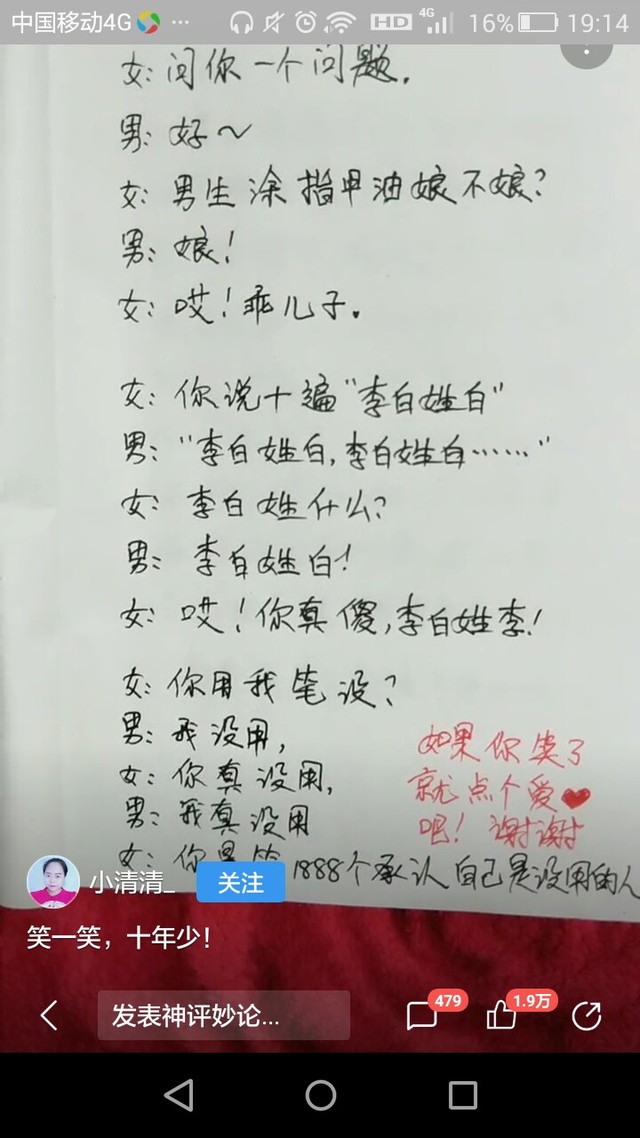 中国移动4G ... HD 4G 16% 19:14
女:问你一个问题.
男:好~
女:男生涂指甲油娘不娘?
男:娘!
女:哎!乖儿子.
女:你说十遍"李白姓白"
男:"李白姓白,李白姓白……"
女:李白姓什么?
男:李白姓白!
女:哎!你真傻,李白姓李!
女:你用我笔没?
男:我没用,
女:你真没用,
男:我真没用
女:你是 1888个承认自己是没用的人
如果你笑了
就点个爱❤
吧!谢谢
小清清_ 关注
笑一笑，十年少！
发表神评妙论... 479 1.9万